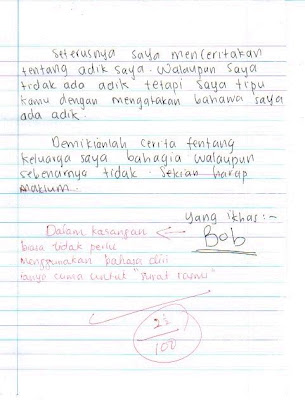 Seterusnya saya menceritakan
tentang adik saya. Walaupun saya
tidak ada adik tetapi saya tipu
kamu dengan mengatakan bahawa saya
ada adik.
Demikianlah cerita tentang
keluarga saya bahagia walaupun
sebenarnya tidak. Sekian harap
maklum.
Yang ikhlas :-
Bob
Dalam karangan
biasa tidak perlu
menggunakan bahasa diri
ianya cuma untuk "surat rasmi"
100